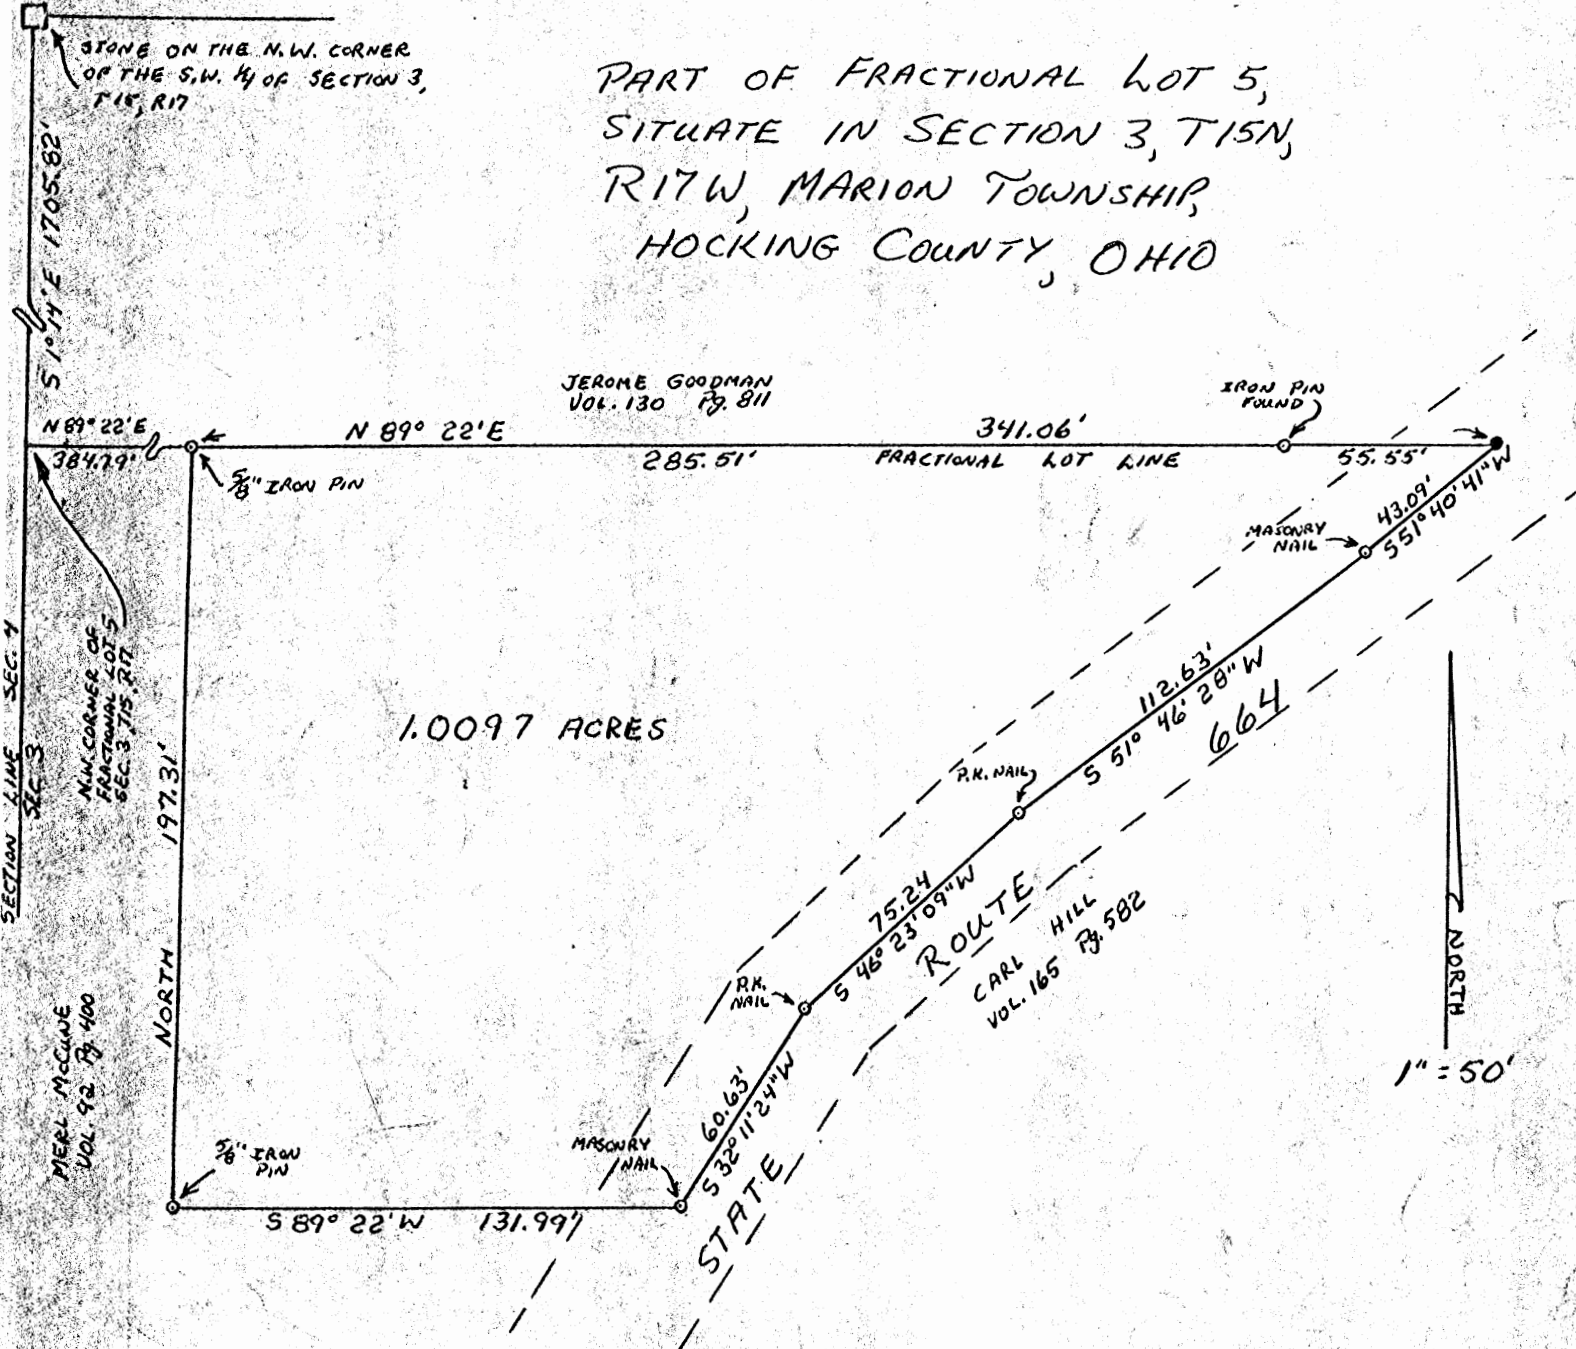 STONE ON THE N.W. CORNER
OF THE S.W. 1/4 OF SECTION 3,
T15, R17
PART OF FRACTIONAL LOT 5,
SITUATE IN SECTION 3, T15N,
R17W, MARION TOWNSHIP,
HOCKING COUNTY, OHIO
S 1° 14' E 1705.82'
JEROME GOODMAN
VOL. 130 Pg. 811
IRON PIN
FOUND
N 89° 22' E
384.79'
N 89° 22' E
341.06'
285.51'
FRACTIONAL LOT LINE
55.55'
5/8" IRON PIN
43.09'
S 51° 40' 41" W
MASONRY
NAIL
N.W. CORNER OF
FRACTIONAL LOT 5
SEC. 3, T15, R17
SECTION LINE SEC. 4
SEC. 3
NORTH 197.31'
1.0097 ACRES
112.63'
S 51° 46' 28" W
664
P.K. NAIL
75.24
S 46° 23' 09" W
ROUTE
CARL HILL
VOL. 165 Pg. 582
P.K.
NAIL
NORTH
1" = 50'
MERL McCUNE
VOL. 92 Pg. 400
60.63'
S 32° 11' 24" W
MASONRY
NAIL
STATE
5/8" IRON
PIN
S 89° 22' W 131.99'